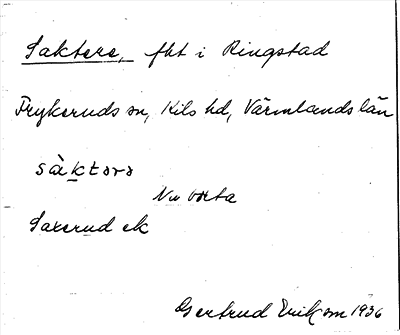 Saktere, fht i Ringstad
Frykeruds sn, Kils hd, Värmlands län
sàktərə
Nu borta
Saxerud ek
Gertrud Erikson 1936